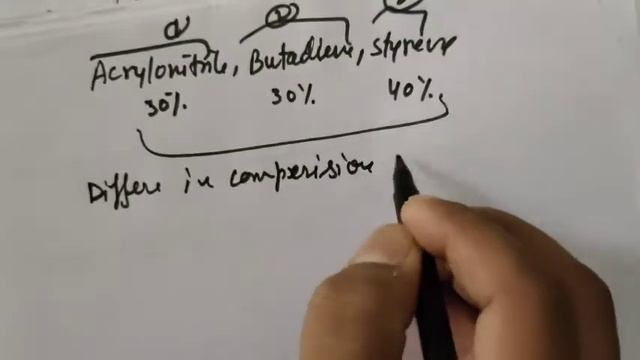 Acrylonitrile, Butadiene, Styrene
30% 30% 40%
Differe in comperision